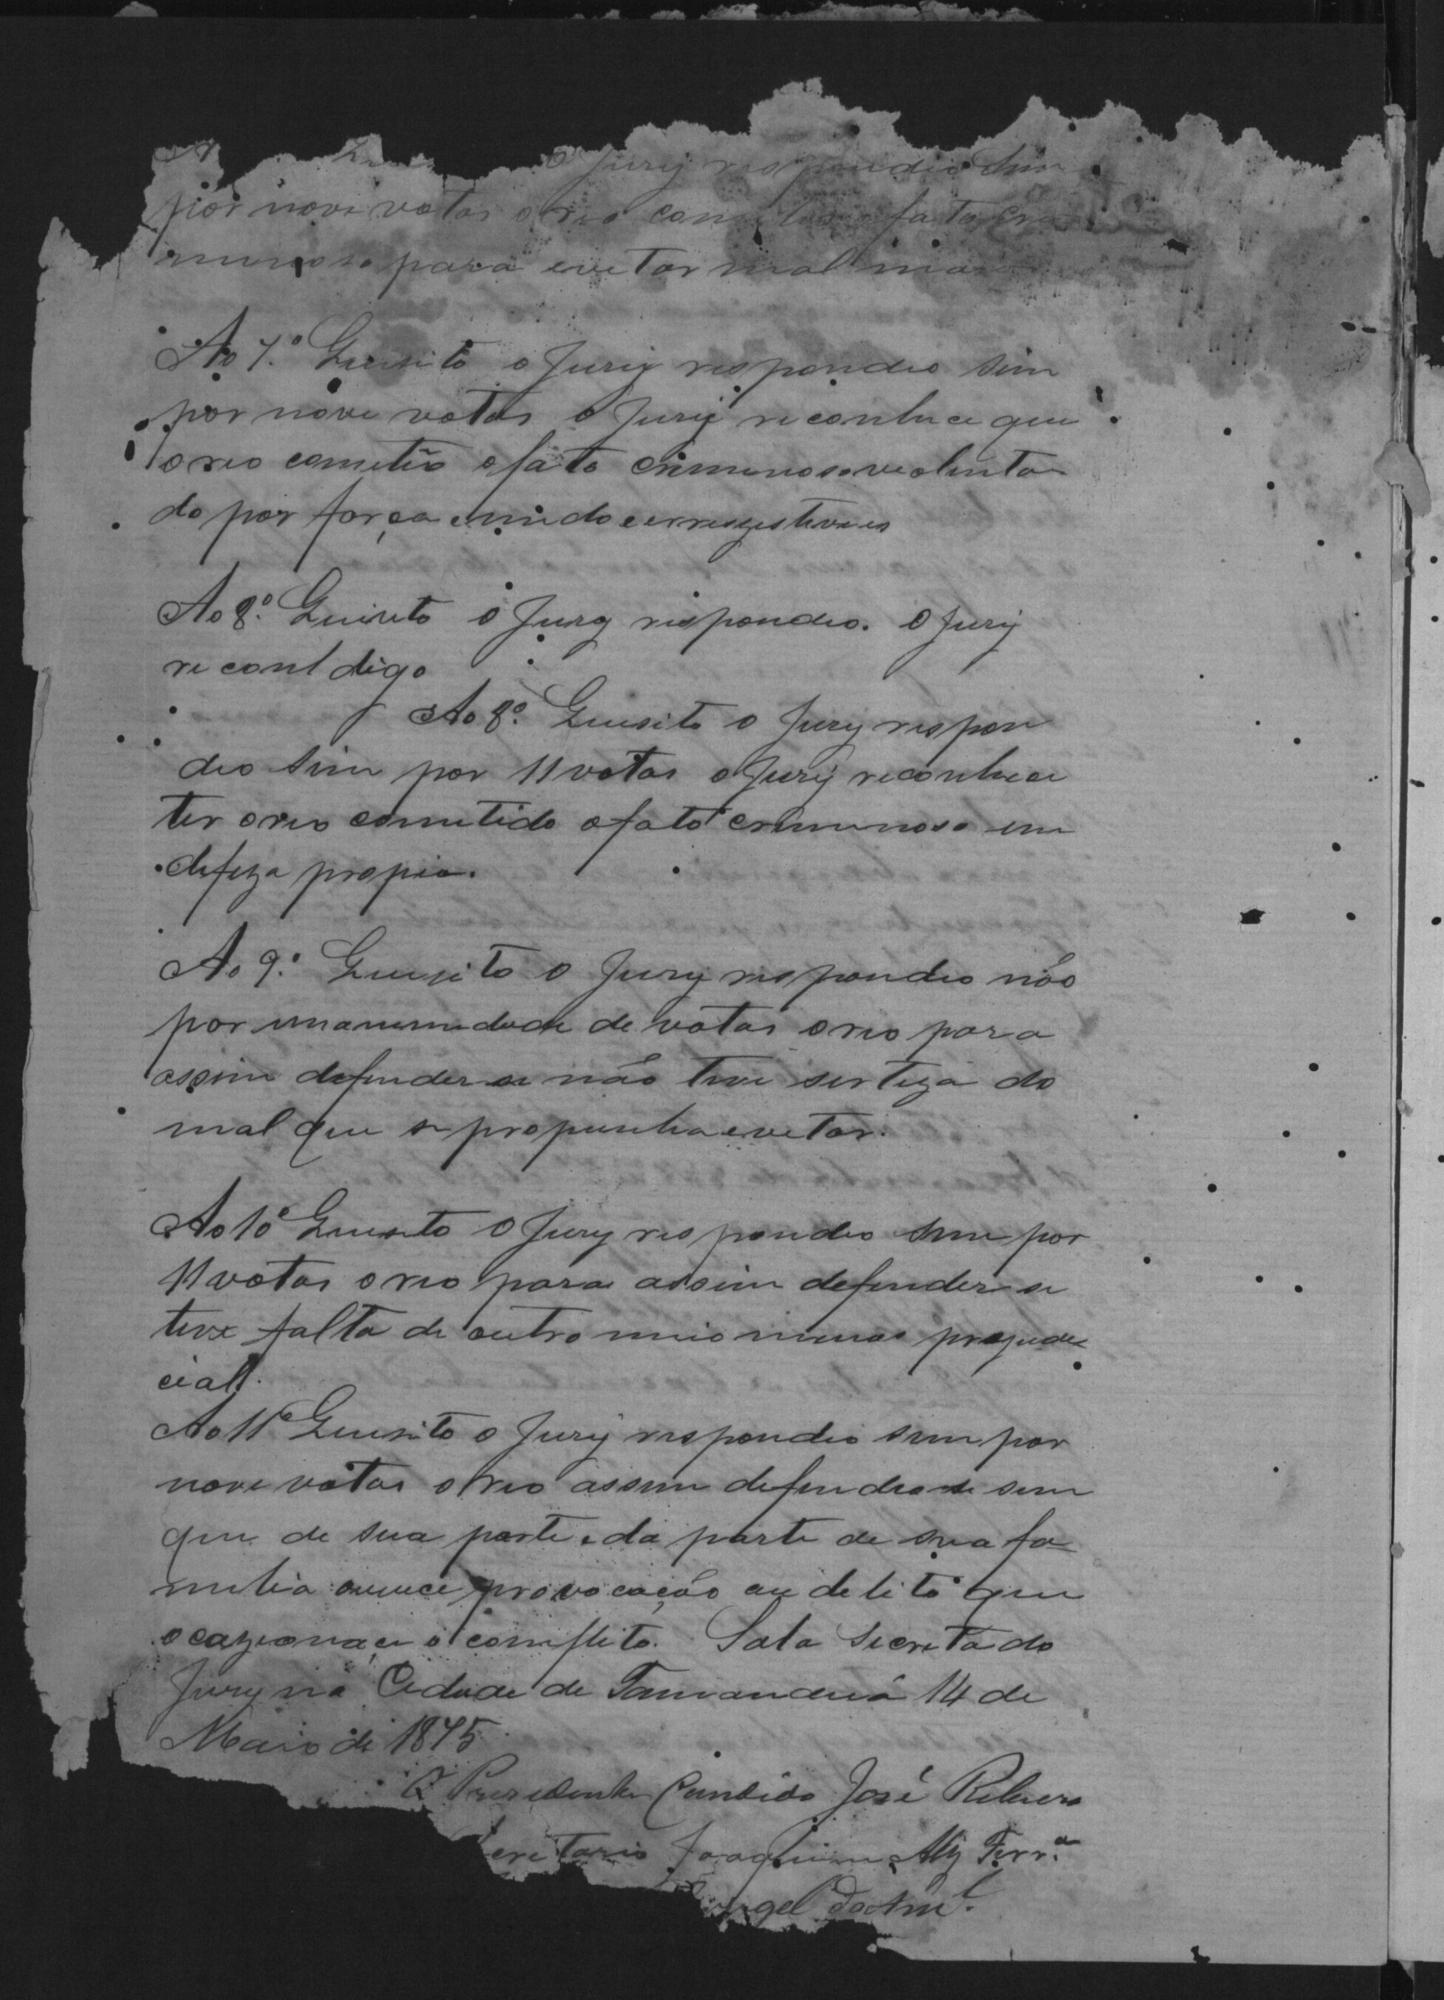 o Jury respondeo sim
por nove votos o reo cometeo o fato cri
minoso para evetar mal maior
Ao 7.º Quisito o Jury respondeo sim
por nove votos o Jury reconhece que
o reo cometeo o fato criminoso violenta
do por força e medo erresestiveis
Ao 8.º Quisito o Jury respondeo. O Jury
reconl digo
Ao 8.º Quisito o Jury respon
deo sim por 11 votos o Jury reconhece
ter o reo cometido o fato criminoso em
defeza propia.
Ao 9.º Quisito o Jury respondeo não
por unanimedade de votos o reo para
assim defender se não teve serteza do
mal que se propunha evetar.
Ao 10º Quisito o Jury respondeo sim por
11 votos o reo para assim defender se
teve falta de outro meio menos prejude
cial.
Ao 11º Quisito o Jury respondeo sim por
nove votos o reo assim defendeo se sem
que de sua parte e da parte de sua fa
milia ouvece provocação ou delito que
ocazionace o conflito. Sala Secreta do
Jury na Cidade de Tamanduá 14 de
Maio de 1875
O Prezidente Candido José Ribeiro
cretario Joaquim Alz Ferr.ª